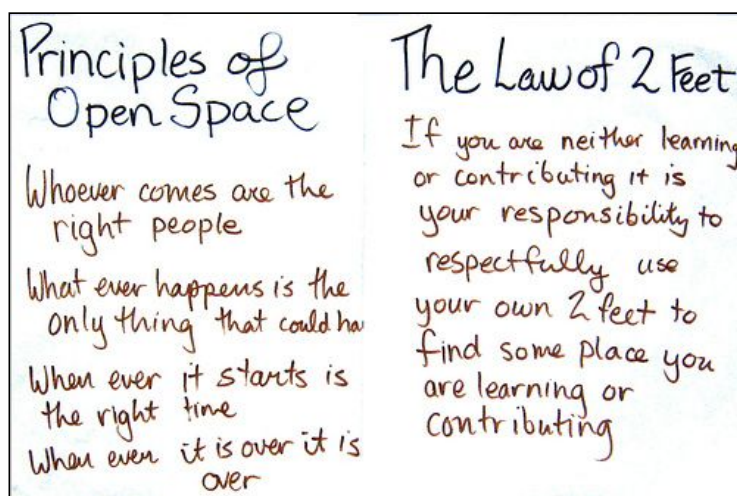 Principles of
Open Space
Whoever comes are the
right people
What ever happens is the
only thing that could ha
When ever it starts is
the right time
When ever it is over it is
over
The Law of 2 Feet
If you are neither learning
or contributing it is
your responsibility to
respectfully use
your own 2 feet to
find some place you
are learning or
contributing